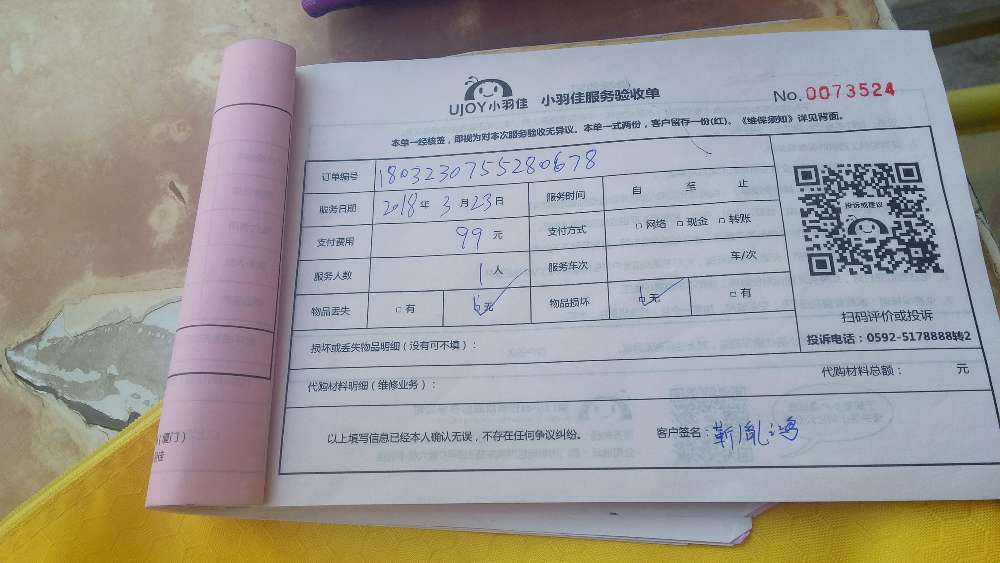 UJOY小羽佳 小羽佳服务验收单 No. 0073524
本单一经核签，即视为对本次服务验收无异议。本单一式两份，客户留存一份(红)。《维保须知》详见背面。
订单编号 1803230755280678
服务日期 2018年 3月23日 服务时间 自 至 止
支付费用 99元 支付方式 □网络 □现金 □转账
服务人数 1人 服务车次 车/次
物品丢失 □有 □无✓ 物品损坏 □无✓ □有
投诉或建议
扫码评价或投诉
投诉电话：0592-5178888转2
损坏或丢失物品明细（没有可不填）：
代购材料明细（维修业务）： 代购材料总额： 元
以上填写信息已经本人确认无误，不存在任何争议纠纷。 客户签名：靳胤鸿